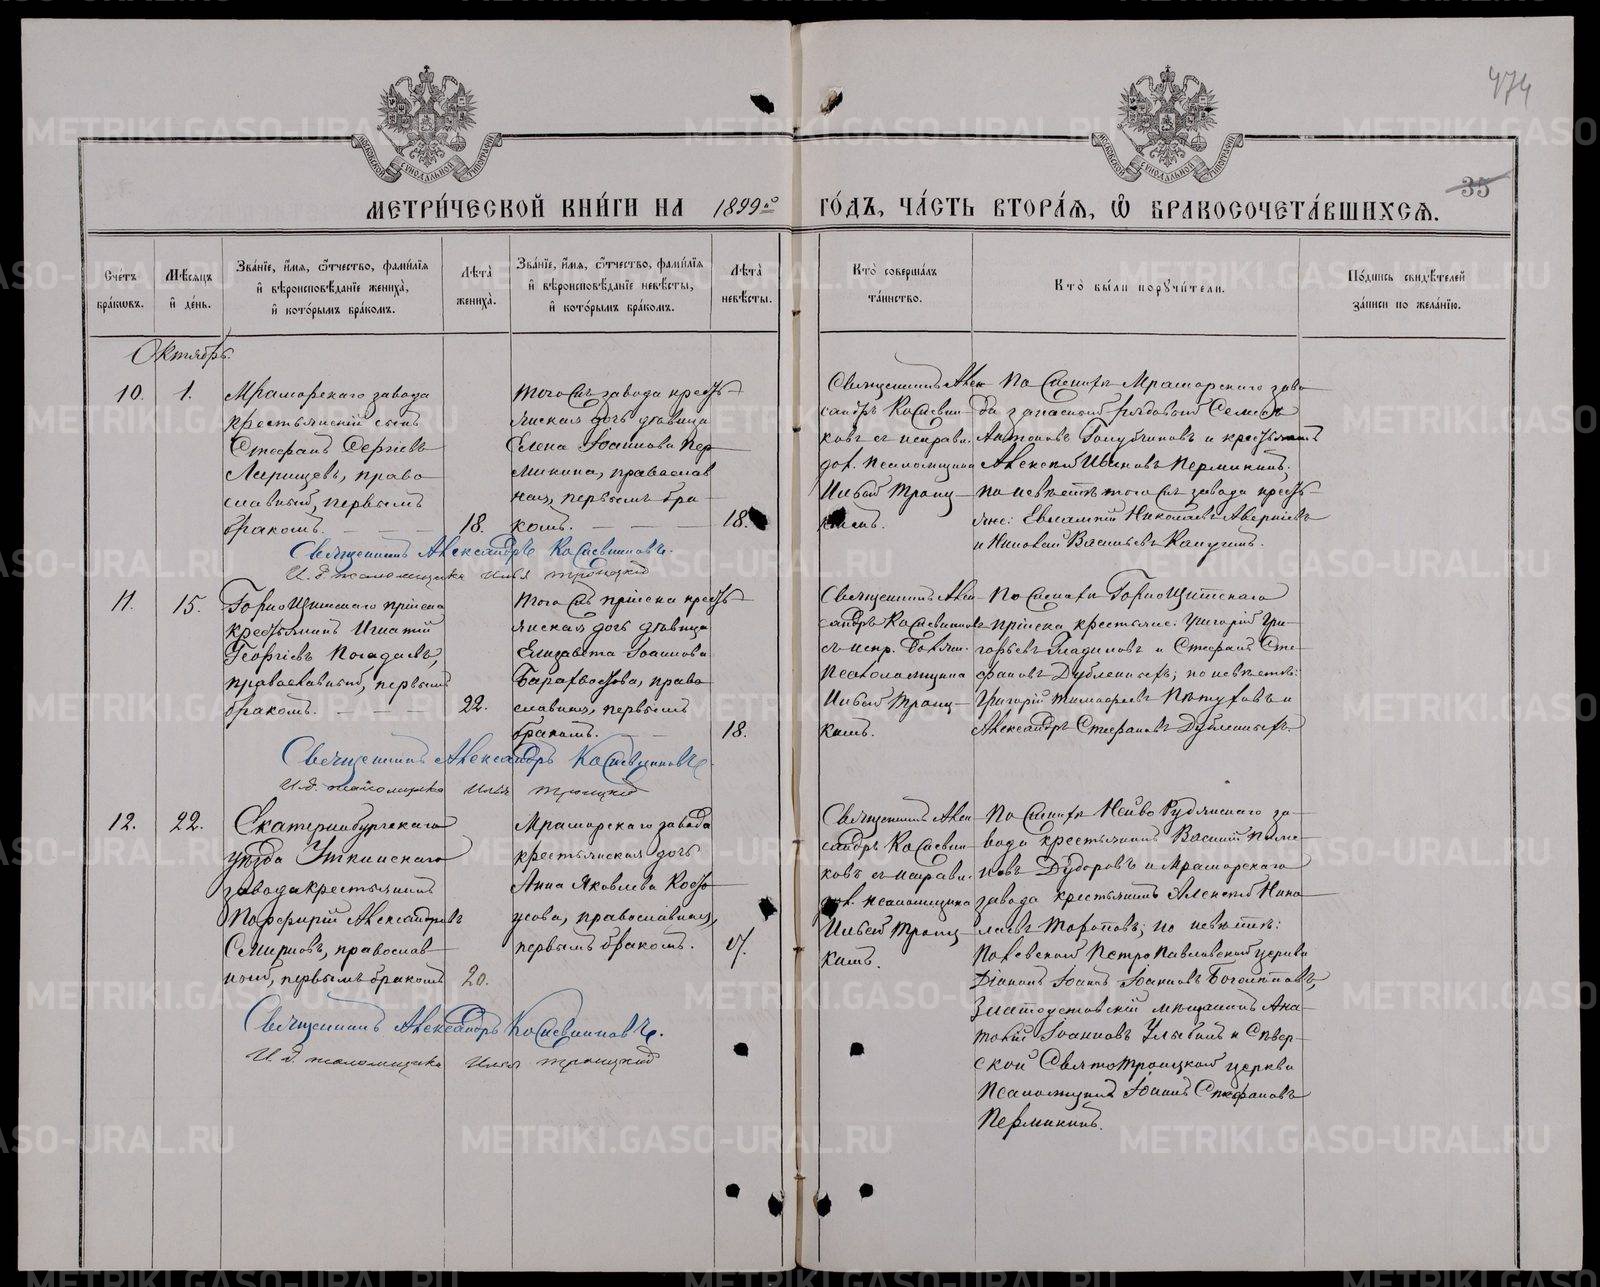 474
35
МЕТРИ́ЧЕСКОЙ КНИ́ГИ НА 1899й ГО́ДЪ, ЧА́СТЬ ВТОРА́Я, Ѽ БРАКОСОЧЕТА́ВШИХСЯ.
Сче́тъ бра́кѡвъ.
Мѣ́сяцъ и҆ де́нь.
Зва́нїе, и҆́мя, ѻ҆́тчество, фами́лїя и҆ вѣроисповѣ́данїе жениха̀, и҆ кото́рымъ бра́комъ.
Лѣ́та жениха̀.
Зва́нїе, и҆́мя, ѻ҆́тчество, фами́лїя и҆ вѣроисповѣ́данїе невѣ́сты, и҆ кото́рымъ бра́комъ.
Лѣ́та невѣ́сты.
Кто̀ соверша́лъ та́инство.
Кто̀ бы́ли порꙋчи́тели.
По́дпись свидѣ́телей за́писи по жела́нїю.
Октябрь.
10.
1.
Мраморскаго завода
крестьянскій сынъ
Стефанъ Сергіевъ
Ларищевъ, право
славный, первымъ
бракомъ.
18.
того жъ завода кресть
янская дочь дѣвица
Елена Іоаннова Пер
микина, православ
ная, первымъ бра
комъ.
18.
Священникъ Алек
сандръ Кожевни
ковъ съ исправл.
дол. псаломщика
Ильей Троиц
кимъ.
По женихѣ Мраморскаго заво
да запасный рядовой Семенъ
Антоновъ Голубчиковъ и крестьянинъ
Алексѣй Ивановъ Пермикинъ;
по невѣстѣ того жъ завода кресть
яне: Евлампій Николаевъ Аверкіевъ
и Николай Васильевъ Капугинъ.
Священникъ Александръ Кожевниковъ.
И. д. псаломщика Илья Троицкій
11.
15.
Горно Щитскаго пріиска
крестьянинъ Игнатій
Георгіевъ
православный, первымъ
бракомъ.
22.
того жъ пріиска кресть
янская дочь дѣвица
Елизавета Іоаннова
право
славная, первымъ
бракомъ.
18.
Священникъ Алек
сандръ Кожевниковъ
съ испр. должн.
псаломщика
Ильей Троиц
кимъ.
По женихѣ Горно Щитскаго
пріиска крестьяне: Григорій Гри
горьевъ Гладиловъ и Стефанъ Сте
фановъ по невѣстѣ:
Григорій Тимофеевъ Пѣтуховъ и
Александръ Стефановъ
Священникъ Александръ Кожевниковъ.
И. д. псаломщика Илья Троицкій
12.
22.
Екатеринбургскаго
уѣзда Уткинскаго
завода крестьянинъ
Порфирій Александровъ
Смирновъ, православ
ный, первымъ бракомъ
20.
Мраморскаго завода
крестьянская дочь
Анна Яковлева Косо
усова, православная,
первымъ бракомъ.
17.
Священникъ Алек
сандръ Кожевни
ковъ съ исправл.
дол. псаломщика
Ильей Троиц
кимъ.
По женихѣ Нейво Рудянскаго за
вода крестьянинъ Василій
новъ Дудоровъ и Мраморскаго
завода крестьянинъ Алексѣй Нико
лаевъ Торотовъ; по невѣстѣ:
Полевской Петро Павловской церкви
Діаконъ Іоаннъ Іоанновъ Богомоловъ,
Златоустовскій мѣщанинъ Ана
толій Іоанновъ Улыбинъ и Сѣвер
ской Свято Троицкой церкви
Псаломщикъ Іоаннъ Стефановъ
Пермикинъ.
Священникъ Александръ Кожевниковъ.
И д псаломщика Илья Троицкій
METRIKI.GASO-URAL.RU